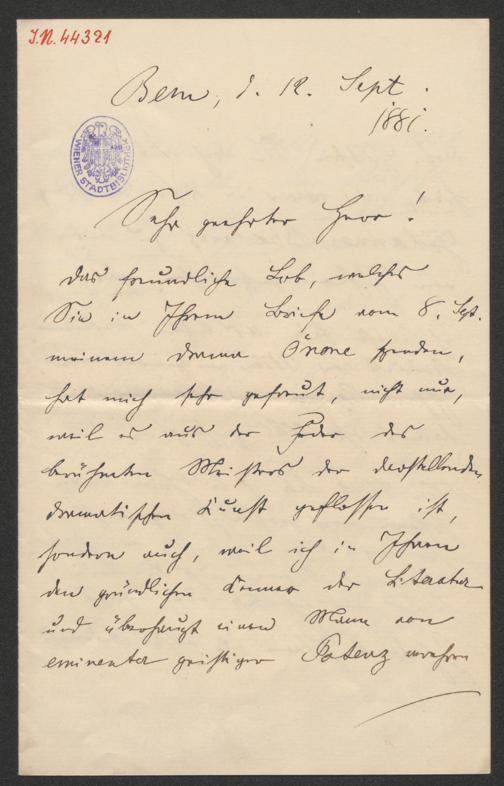 I.N. 44321
Bern, d. 12. Sept.
1881.
WIENER STADTBIBLIOTHEK
Sehr geehrter Herr!
Das freundliche Lob, welches
Sie in Ihrem Briefe vom 8. Sept.
meinem Drama Önone spenden,
hat mich sehr gefreut, nicht nur,
weil es aus der Feder des
berühmten Meisters der darstellenden
dramatischen Kunst geflossen ist,
sondern auch, weil ich in Ihnen
den gründlichen Kenner der Literatur
und überhaupt einen Mann von
eminenter geistiger Potenz verehre